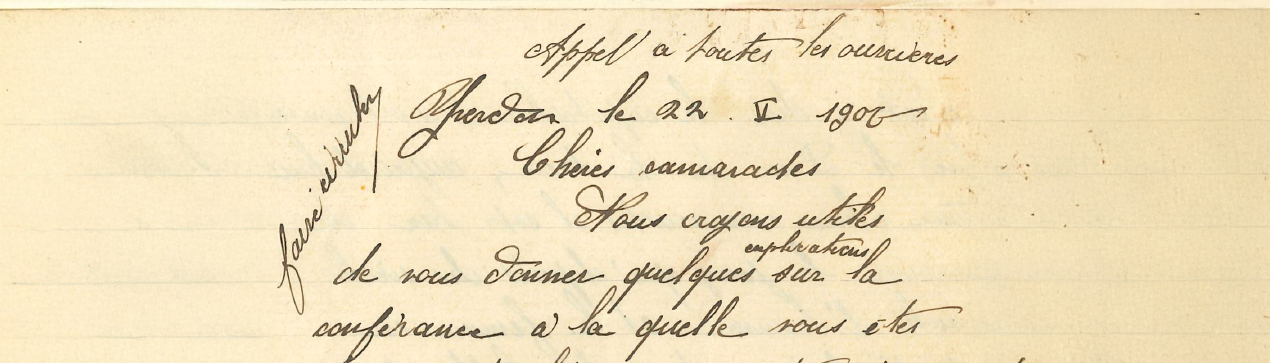 Appel à toutes les ouvrières
Yverdon le 22. V 1907
Chères camarades
faire circuler
Nous croyons utiles
explications
de vous donner quelques sur la
conférance à la quelle vous êtes